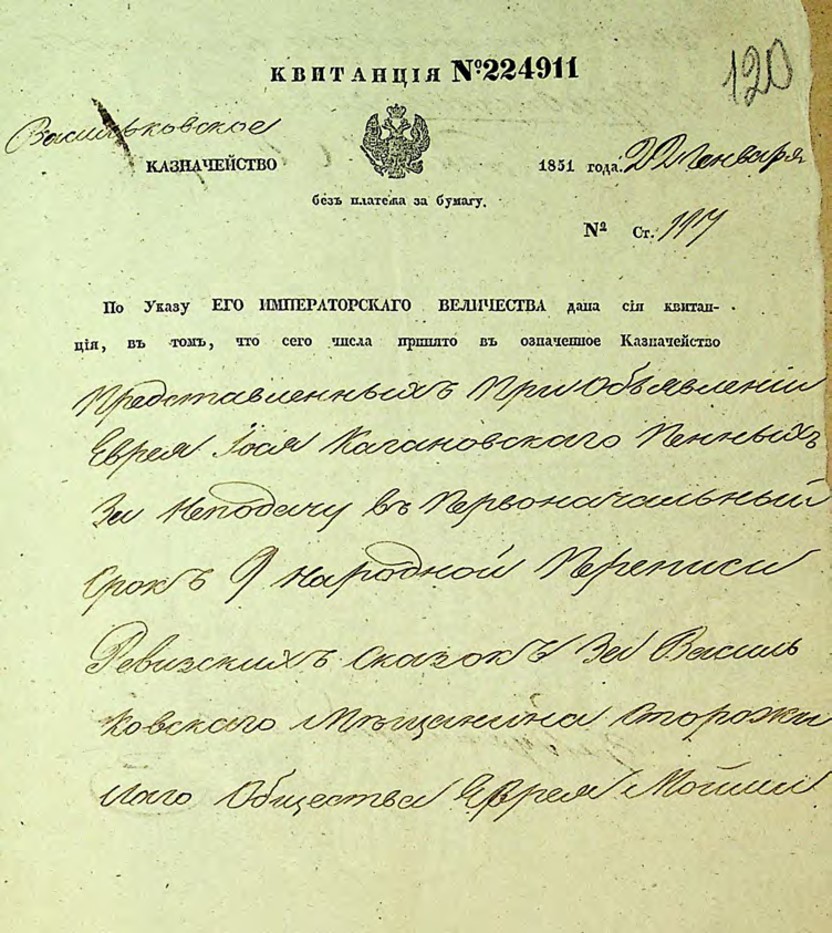 120
КВИТАНЦІЯ №224911
Васильковское
КАЗНАЧЕЙСТВО
1851 года. 22 Генваря
безъ платежа за бумагу.
№ Ст. 117
По Указу ЕГО ИМПЕРАТОРСКАГО ВЕЛИЧЕСТВА дана сія квитан-
ція, въ томъ, что сего числа принято въ означенное Казначейство
Представленныхъ При Объявленіи
Еврея Іося Кагановскаго Пенныхъ
За Неподачу въ Первоначальный
Срокъ 9 Народной Переписи
Ревизскихъ Сказокъ За Василь
ковскаго Мѣщанина
Общества Еврея